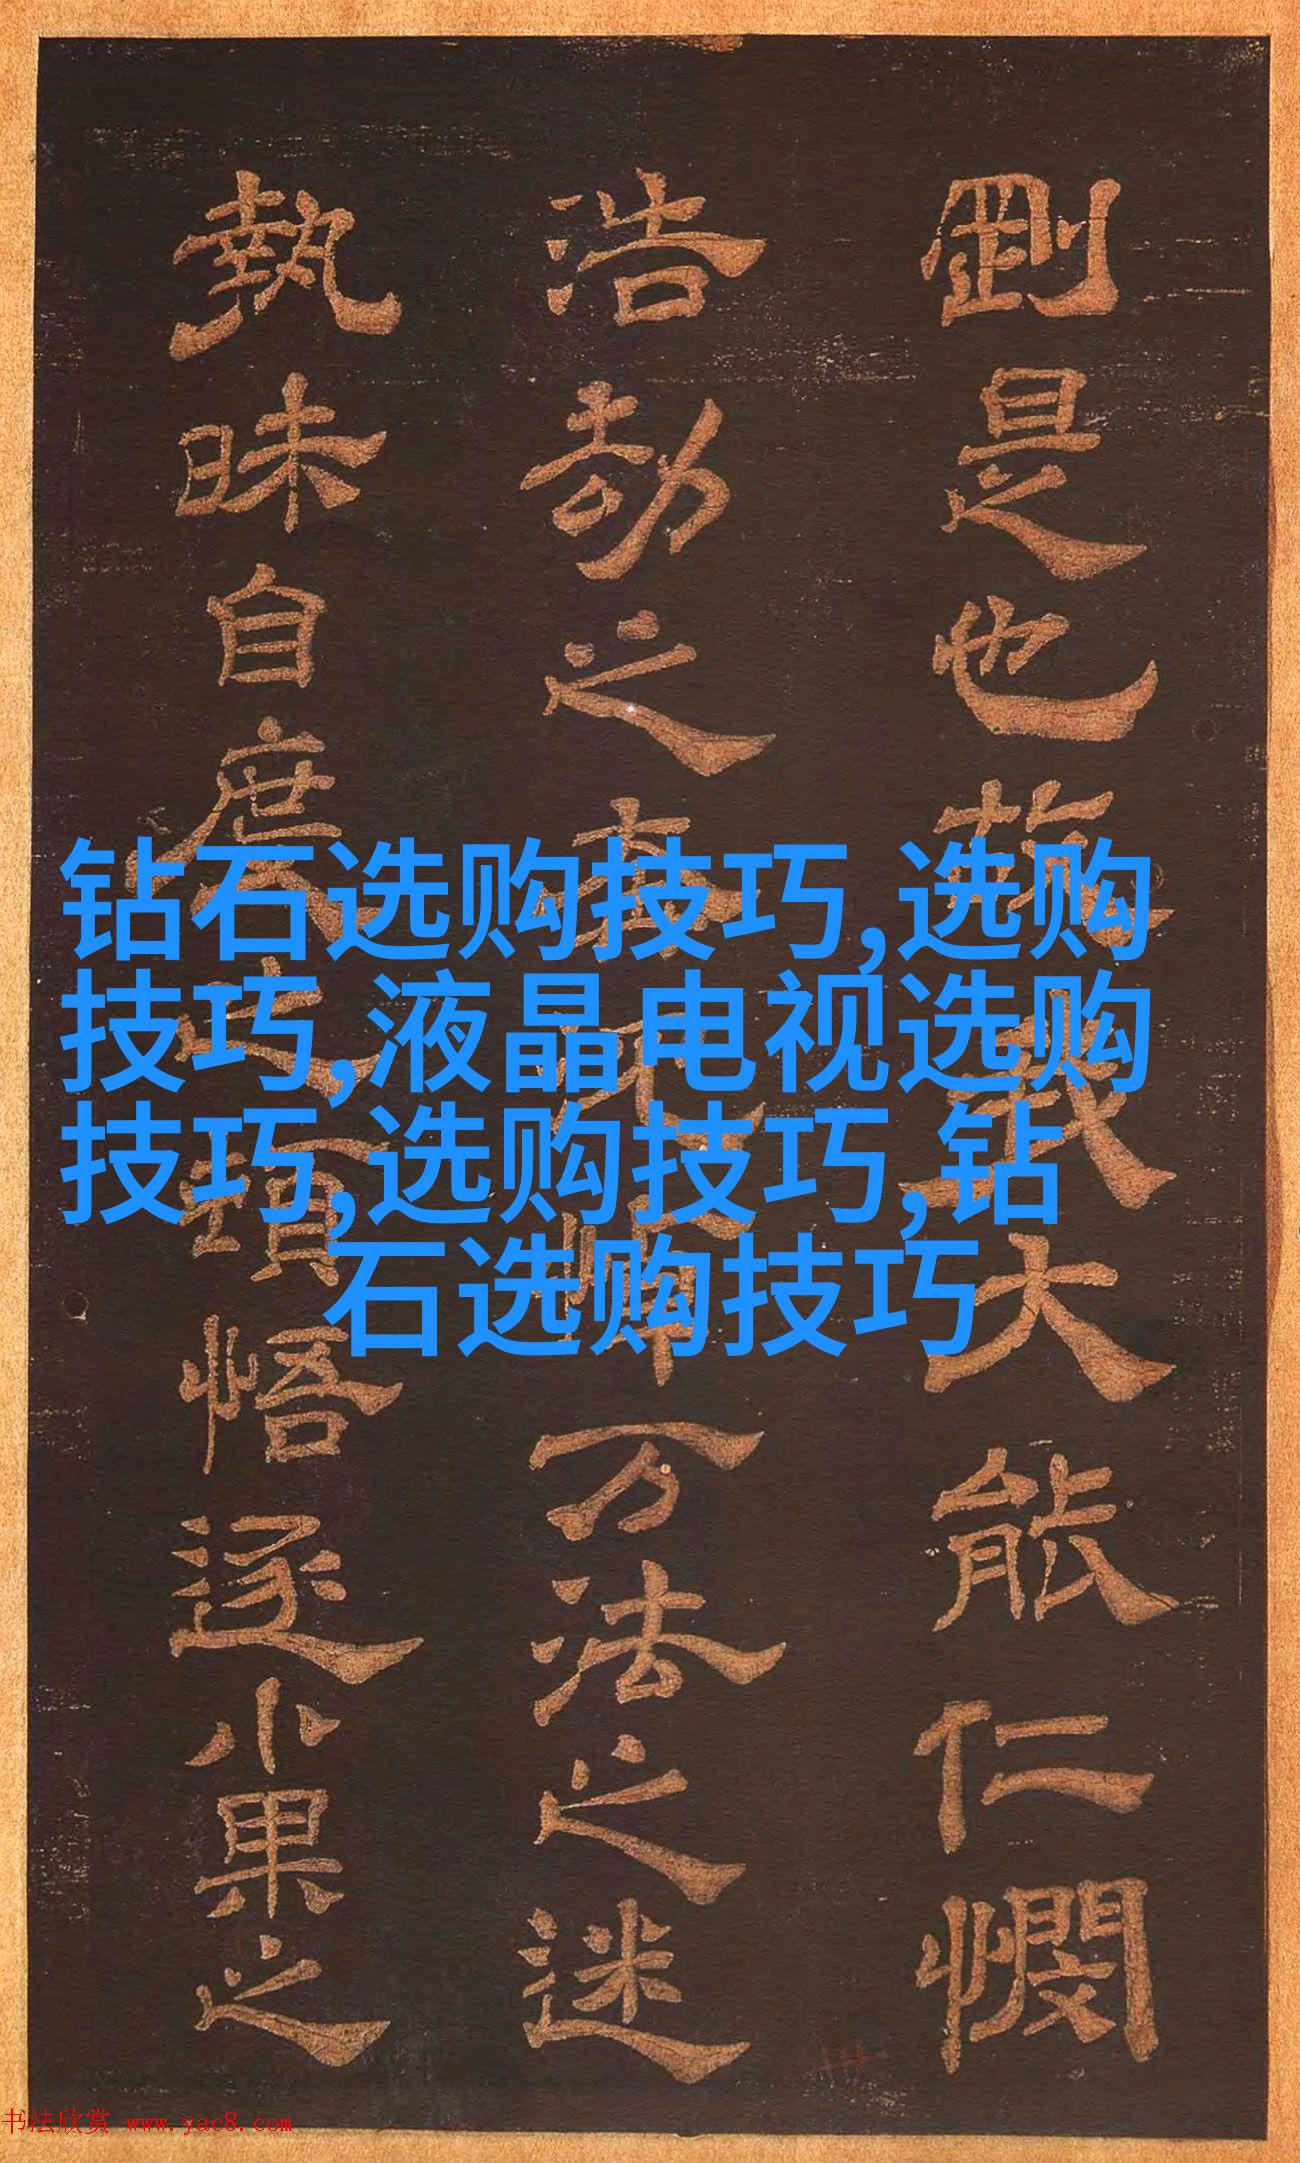 剛是也薩□我大能仁憫
浩劫之未□□師万法之迷
執昧自度之頃悟逐小果之
钻石选购技巧,选购
技巧,液晶电视选购
技巧,选购技巧,钻
石选购技巧
书法欣赏 www.yac8.com